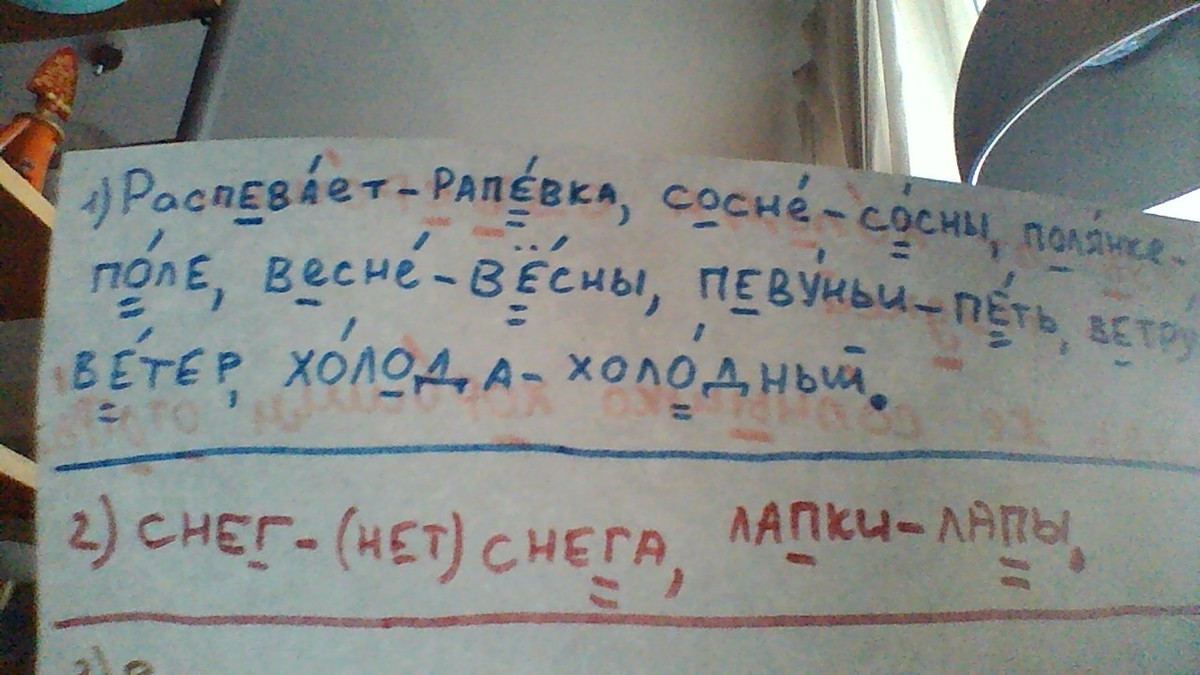 1) Распева́ет - РАПЕ́ВКА, сосне́ - со́сны, поля́нке -
по́ле, весне́ - вё́сны, певу́ньи - пе́ть, ветру́
ве́тер, хо́лода - холо́дный.
2) Снег - (нет) снега, лапки - лапы.